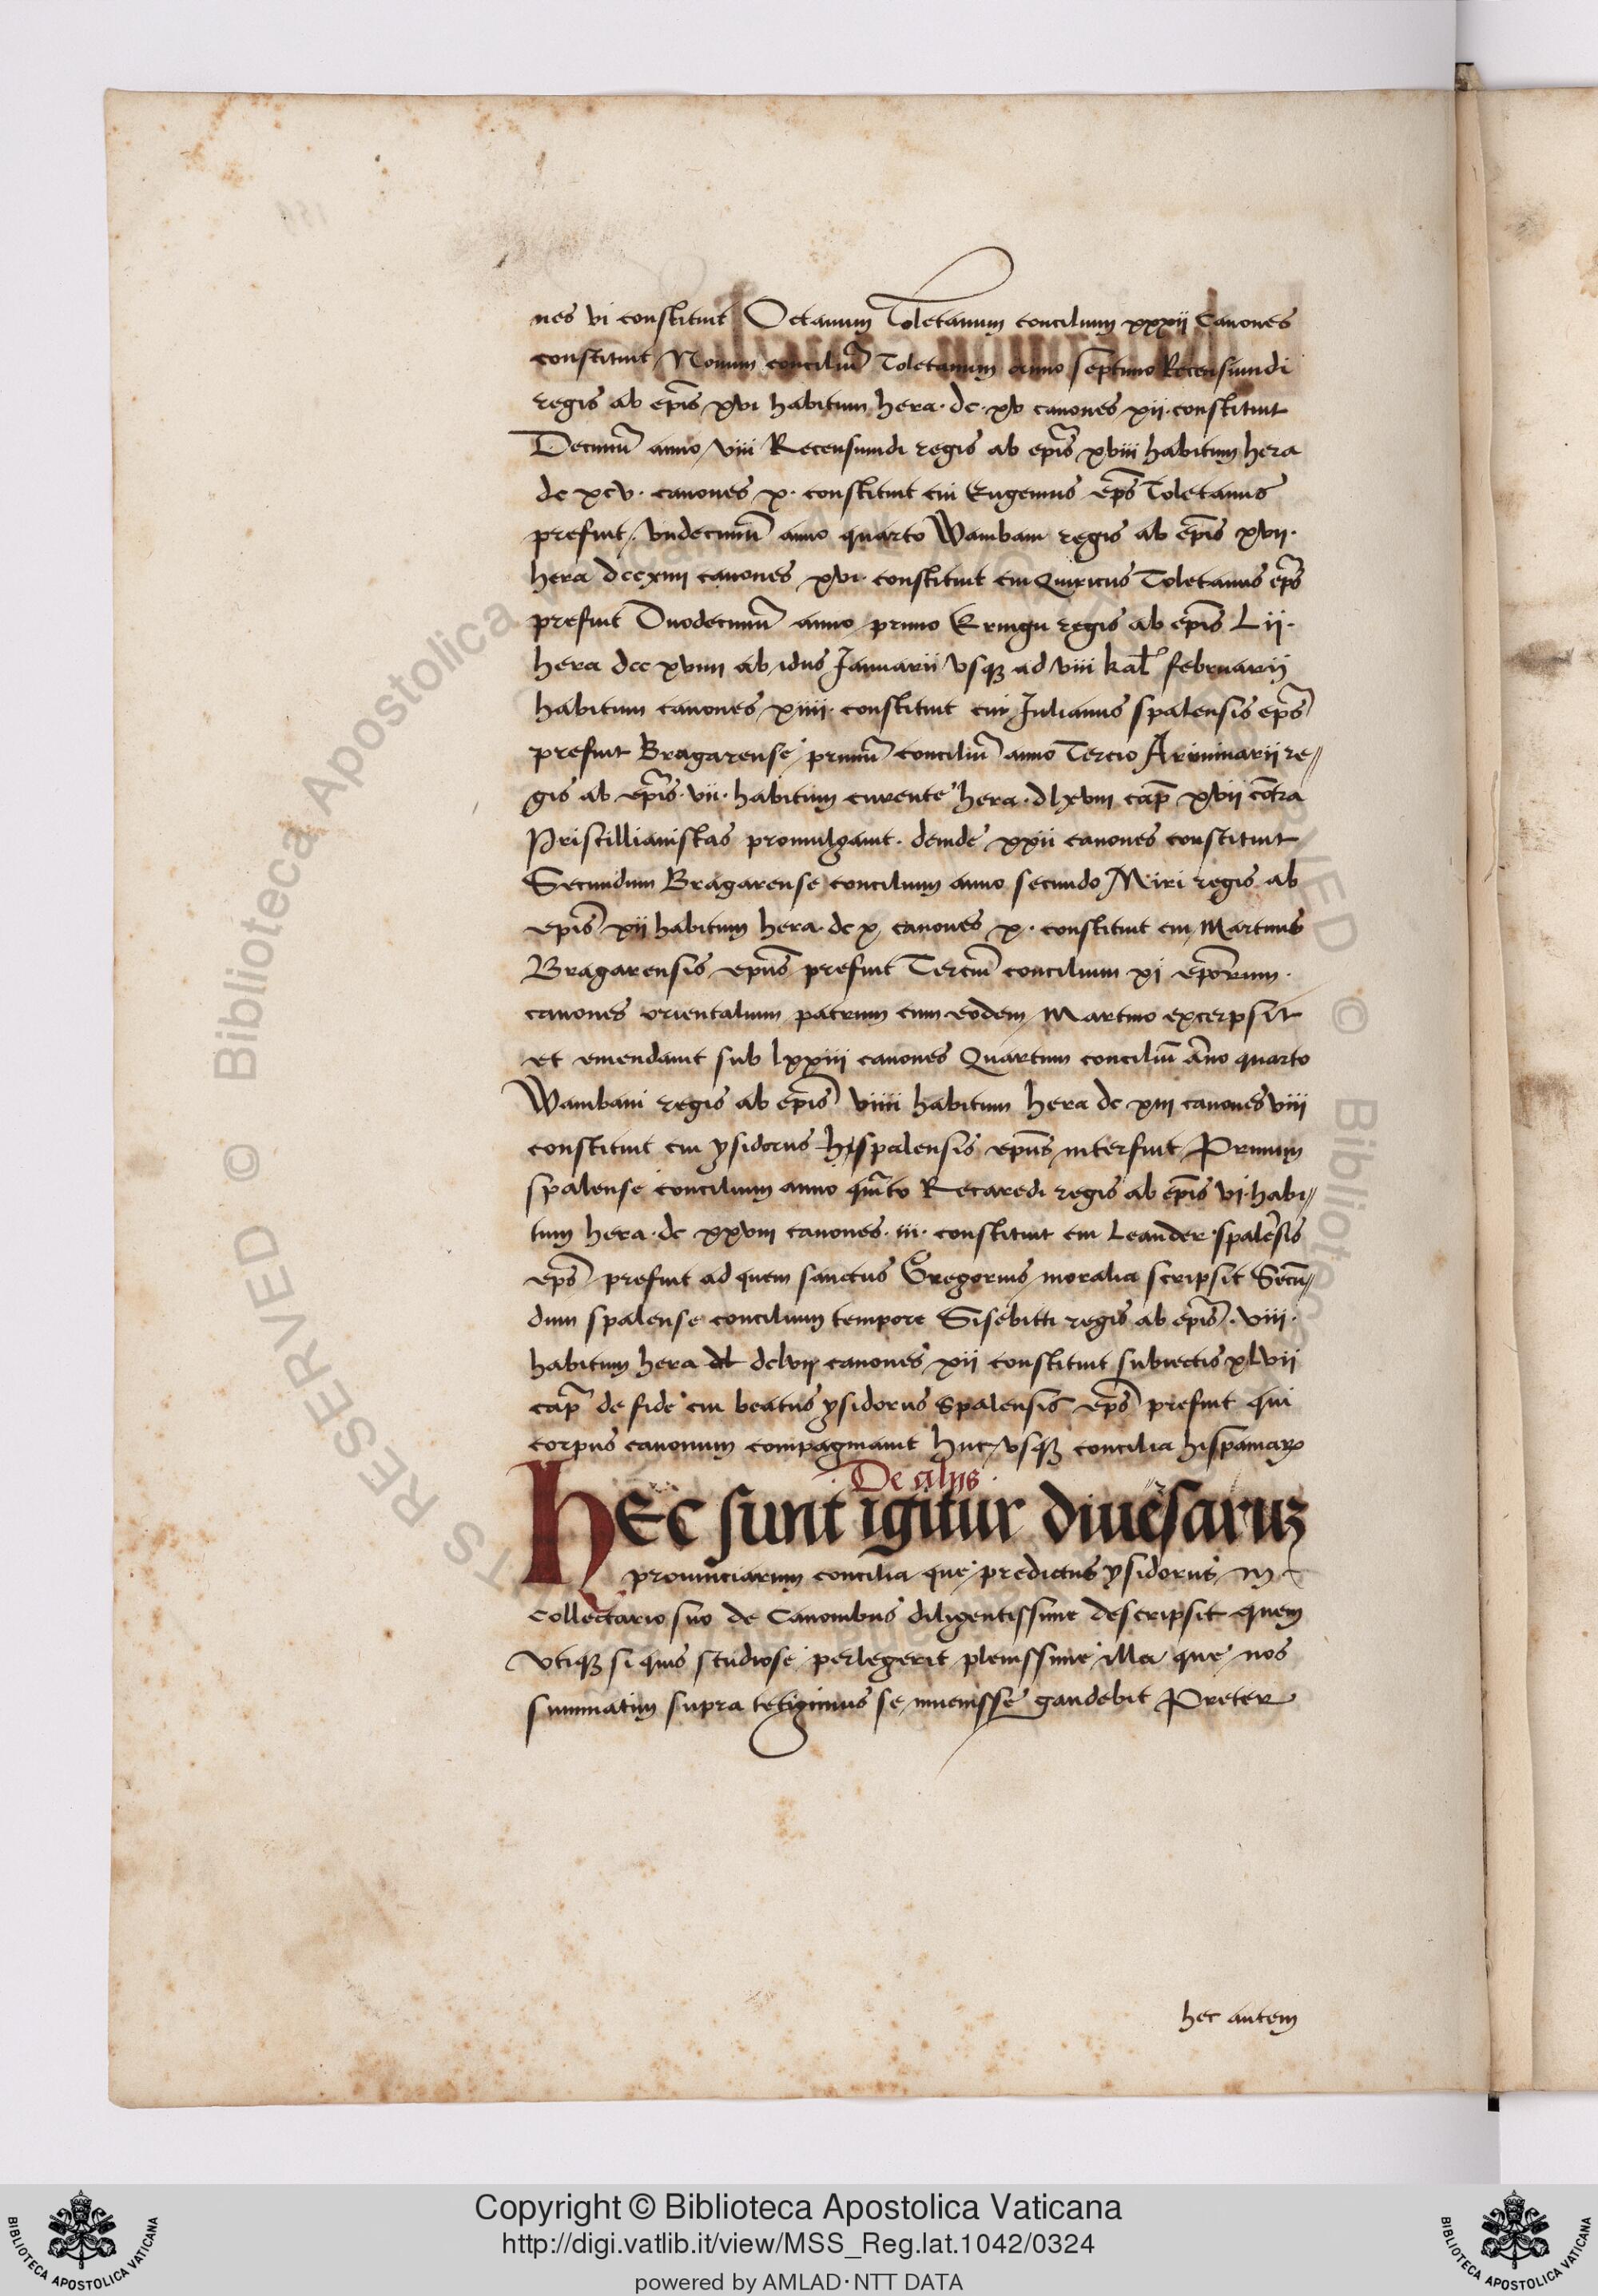 nes vi constituit Octauum Toletanum concilium xxxii Canones
constituit Nonum conciliũ Toletanum anno septimo Recensuindi
regis ab ep̃is xvi habitum hera · dc · xv canones xii · constituit
Decimũ anno viii Recensuindi regis ab ep̃is xviii habitum hera
dc xcv · canones x · constituit cui Eugenius ep̃s Toletanus
prefuit · Vndecimũ anno quarto Wambani regis ab ep̃is xvii ·
hera dccxiii canones xvi · constituit cui Quiricus Toletanus ep̃s
prefuit Duodecimũ anno primo Eruigii regis ab ep̃is Lii ·
hera dcc xviiii ab idus Januarii vsqꝫ ad viii kal̃ februarij
habitum canones xiiii · constituit cui Julianus spalensis ep̃s
prefuit Bragarense primũ conciliũ anno Tercio Ariminarii re〃
gis ab ep̃is · vii · habitum curente hera · dlxviii cap̃ xvii cõtra
Priscillianistas promulgauit · deinde xxii canones constituit
Secundum Bragarense concilium anno secundo Miri regis ab
epĩs xii habitum hera · dc x canones x · constituit cui Martinus
Bragarensis epũs prefuit Terciũ concilium xi ep̃orum ·
canones orientalium patrum cum eodem Martino excerpsit
et emendauit sub lxxiii canones Quartum conciliũ ãno quarto
Wambani regis ab ep̃is viiii habitum hera dc xiii canones viii
constituit cui ysidorus hispalensis epũs interfuit Primum
spalense concilium anno quĩto Recaredi regis ab ep̃is vi · habi〃
tum hera · dc xxviii canones · iii · constituit cui Leander spalẽsis
ep̃s prefuit ad quem sanctus Gregorius moralia scripsit Secũ〃
dum spalense concilium tempore Sisebitti regis ab ep̃is · viii ·
habitum hera dclvij canones xii constituit subiectis xlvii
cap̃ de fide cui beatus ysidorus Spalensis ep̃s prefuit qui
corpus canonum compaginauit huc vsqꝫ concilia hispaniaꝝ
· De alijs ·
HEC sunt igitur diuersaruꝫ
prouinciarum concilia que predictus ysidorus in
Collectario suo de Canonibus diligentissime descripsit quem
vtiqꝫ si quis studiose perlegerit plenissime illa que nos
summatim supra tetigimus se inuenisse gaudebit Preter
hec autem
© Biblioteca Apostolica Vaticana
Copyright © Biblioteca Apostolica Vaticana
http://digi.vatlib.it/view/MSS_Reg.lat.1042/0324
powered by AMLAD·NTT DATA
BIBLIOTECA APOSTOLICA VATICANA
BIBLIOTECA APOSTOLICA VATICANA